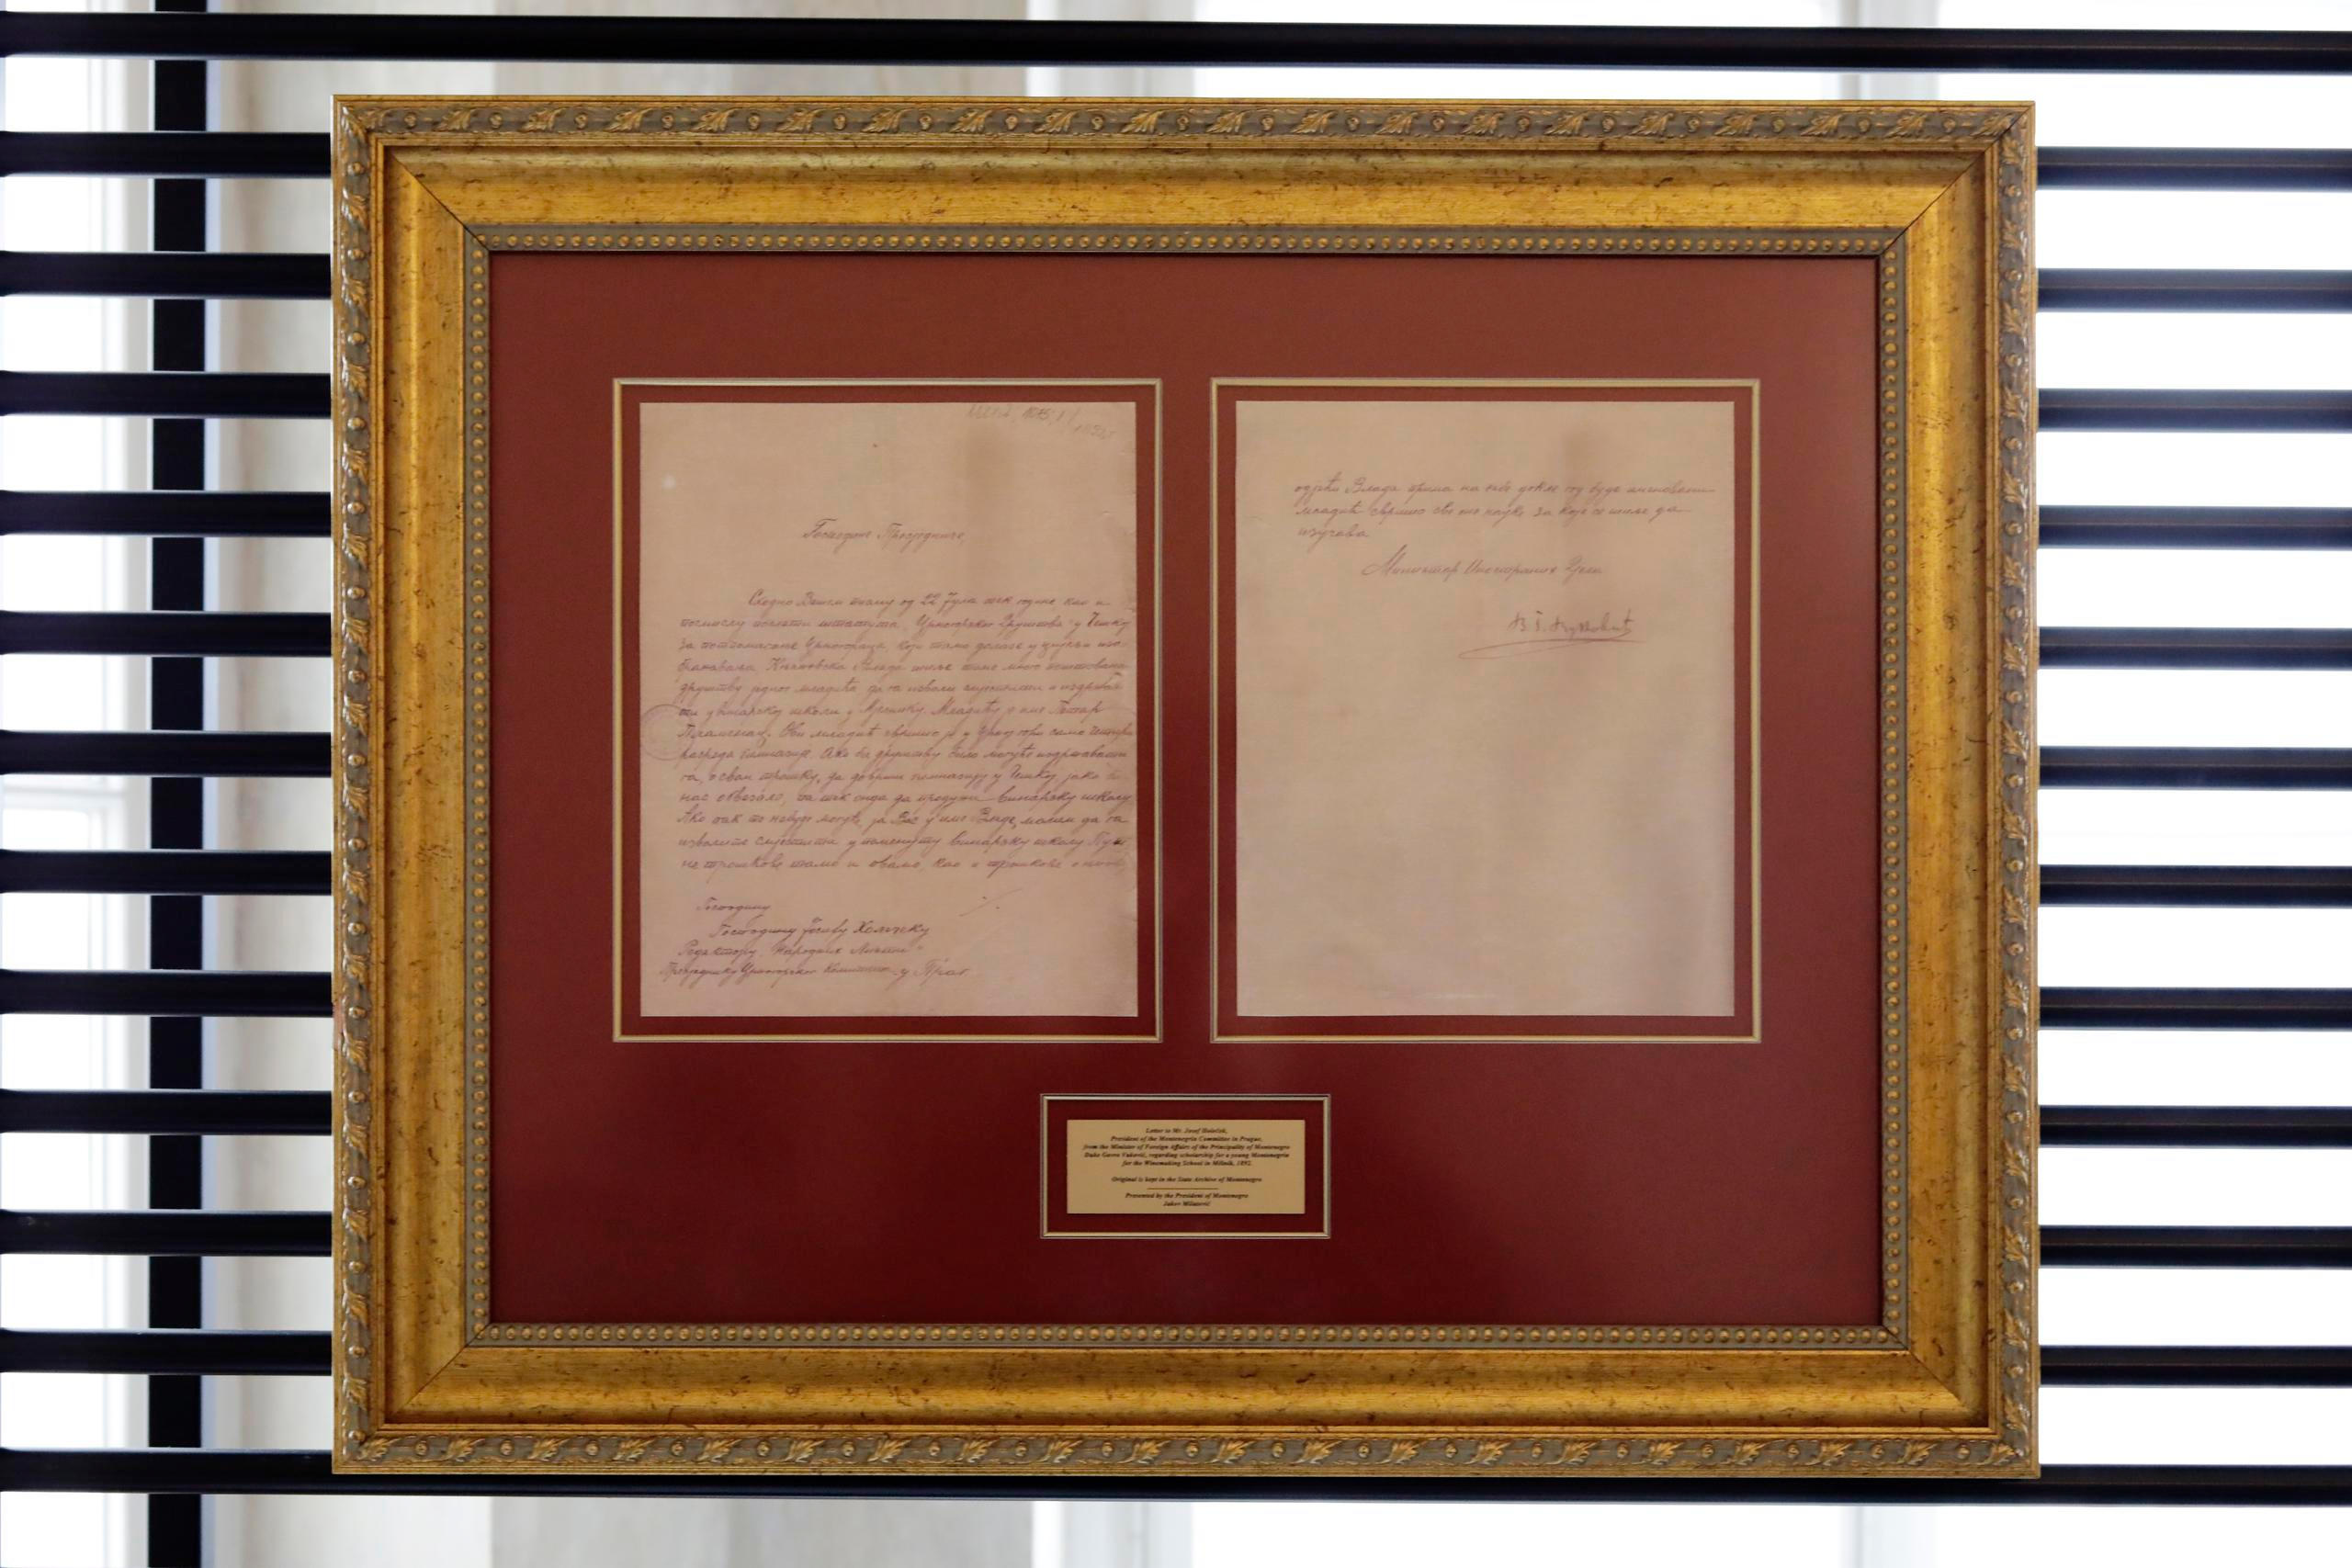 Господине Предсједниче,
Сходно Вашем писму од 22 Јула тек године као и
Црногорског Друштва у Чешку
за потпомагање Црногораца, који тамо долазе у цијељи
Књажевска Влада шиље
друштву једног младића да га изволи
винарску школу у Младићу је име Петар
Пламенац. Ови младић свршио је у Црној гори само четири
разреда гимназије. Ако би друштву било могуће издржавати
га, о свом трошку, да доврши гимназију у Чешку, јако би
нас обвезало, па тек онда да продужи винарску школу
Ако пак то небуде могуће, ја Вас у име Владе, молим да га
изволите смјестити у поменуту винарску школу Пут
не трошкове тамо и овамо, као и трошкове о
Господину
Господину Јосифу Холечеку
Редактору "Народних Листи"
Предсједнику Црногорског у Праг
Влада прима на себе докле год буде
младић свршио све оне науке за које се шиље да
изучава
Министар Иностраних Дјела
В. Г. Вуковић
Letter to Mr. Josef Holeček,
President of the Montenegrin Committee in Prague,
from the Minister of Foreign Affairs of the Principality of Montenegro
Duke Gavro Vuković, regarding scholarship for a young Montenegrin
for the Winemaking School in Mělník, 1892.
Original is kept in the State Archive of Montenegro
Presented by the President of Montenegro
Jakov Milatović